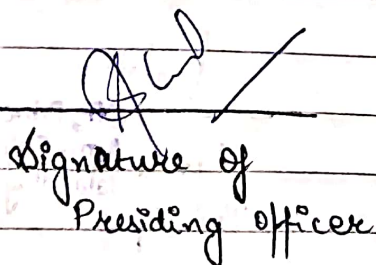 Signature of
Presiding officer